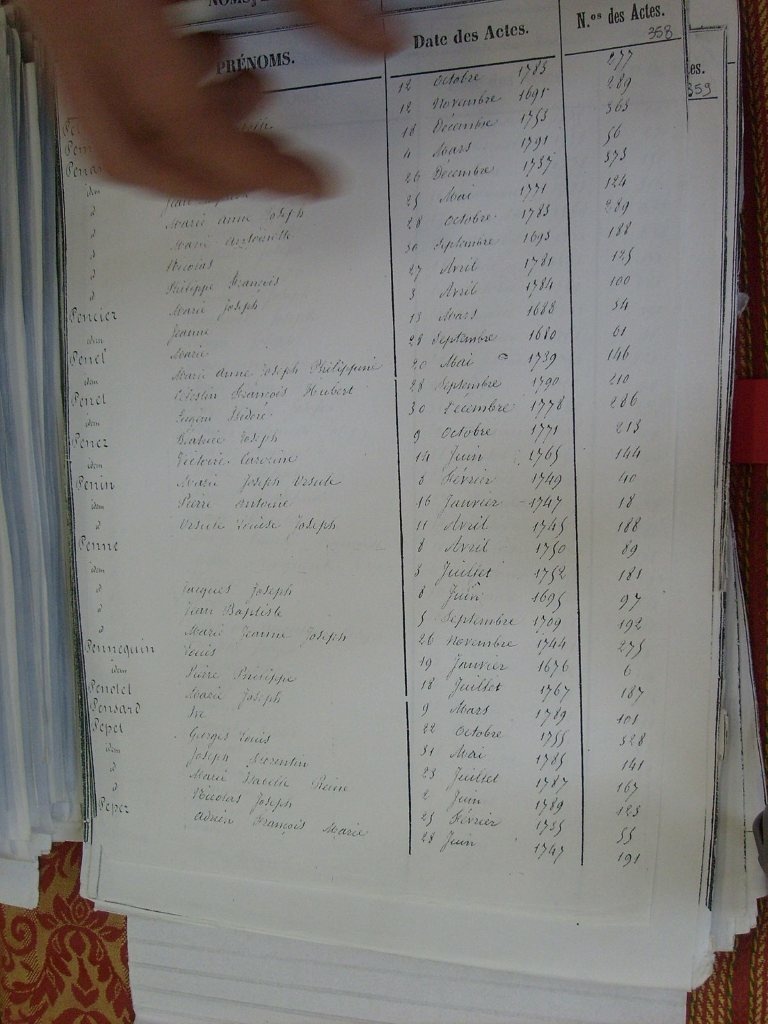 NOMS
PRÉNOMS. Date des Actes. N.os des Actes.
358
12 Octobre 1783 277
12 Novembre 1691 289
18 Décembre 1753 363
4 Mars 1791 56
26 Décembre 1737 373
idem 25 Mai 1771 124
d Marie Anne Joseph 28 Octobre 1783 289
d Marie Antoinette 30 Septembre 1693 188
d Nicolas 27 Avril 1781 125
d Philippe François 3 Avril 1784 100
Pencier Marie Joseph 13 Mars 1688 54
idem Jeanne 28 Septembre 1680 61
Penel Marie 20 Mai 1739 146
idem Marie Anne Joseph Philippine 28 Septembre 1790 210
Penet Célestin François Hubert 30 Décembre 1778 286
idem Eugène Isidore 9 Octobre 1771 213
Penez Joseph 14 Juin 1765 144
idem Victoire Caroline 3 Février 1749 40
Penin Marie Joseph Ursule 16 Janvier 1747 18
idem Pierre Antoine 11 Avril 1745 188
d Ursule Louise Joseph 8 Avril 1750 89
Penne 3 Juillet 1752 181
idem Jacques Joseph 8 Juin 1695 97
d Jean Baptiste 5 Septembre 1709 192
d Marie Jeanne Joseph 26 Novembre 1744 275
Pennequin Louis 19 Janvier 1676 6
idem Pierre Philippe 18 Juillet 1767 187
Penolet Marie Joseph 9 Mars 1789 101
Pensard Ive 22 Octobre 1755 328
Pepet Georges Louis 31 Mai 1785 141
idem Joseph Florentin 23 Juillet 1787 167
d Marie Reine 2 Juin 1789 123
d Nicolas Joseph 25 Février 1755 55
Peper Adrien François Marie 28 Juin 1747 191
es.
359